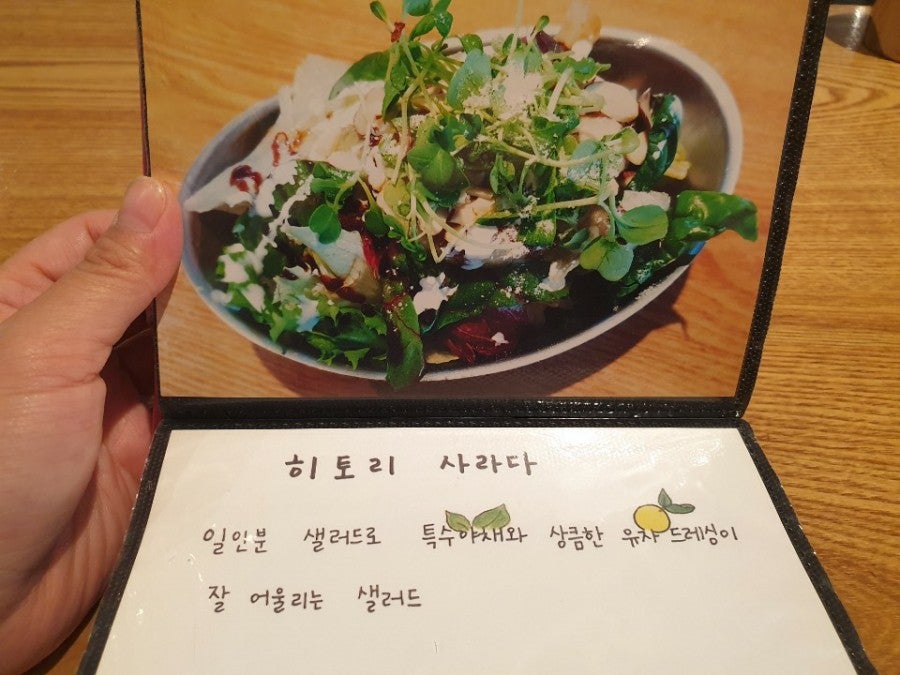 히토리 사라다
일인분 샐러드로 특수야채와 상큼한 유자 드레싱이
잘 어울리는 샐러드